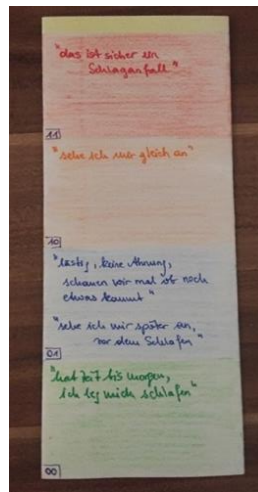 "das ist sicher ein
Schlaganfall"
11
"sehe ich mir gleich an"
10
"lästig, keine Ahnung,
schauen wir mal ob noch
etwas kommt"
"sehe ich mir später an,
vor dem Schlafen"
01
"hat Zeit bis morgen,
ich leg mich schlafen"
00